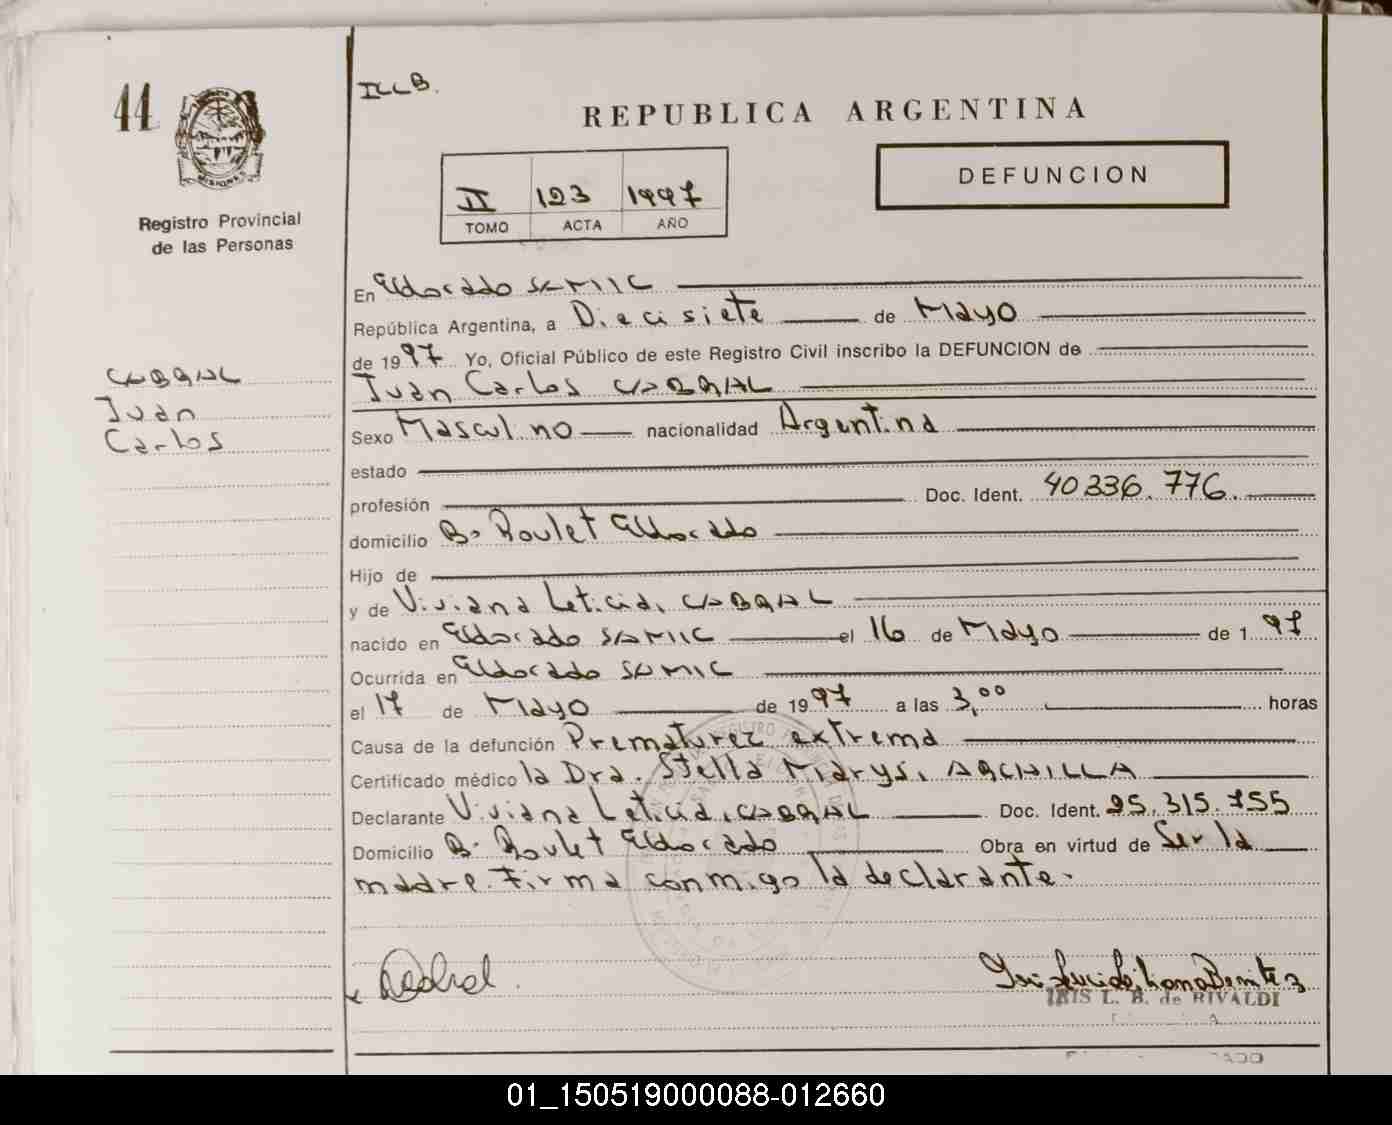 44
MISIONES
Registro Provincial
de las Personas
CABRAL
Juan
Carlos
ILLB.
REPUBLICA ARGENTINA
DEFUNCION
II 123 1997
TOMO ACTA AÑO
En Eldorado SAMIC
República Argentina, a Diecisiete de Mayo
de 1997 Yo, Oficial Público de este Registro Civil inscribo la DEFUNCION de
Juan Carlos CABRAL
Sexo Masculino nacionalidad Argentina
estado
profesión Doc. Ident. 40336.776.
domicilio Bº Roulet Eldorado
Hijo de
y de Viviana Leticia, CABRAL
nacido en Eldorado SAMIC el 16 de Mayo de 1 97
Ocurrida en Eldorado SAMIC
el 17 de Mayo de 1997 a las 3,00 horas
Causa de la defunción Prematurez extrema
Certificado médico la Dra. Stella Marys, ARCHILLA
Declarante Viviana Leticia, CABRAL Doc. Ident. 25.315.755
Domicilio Bº Roulet Eldorado Obra en virtud de Ser la
madre. Firma conmigo la declarante.
IRIS L. B. de RIVALDI
01_150519000088-012660